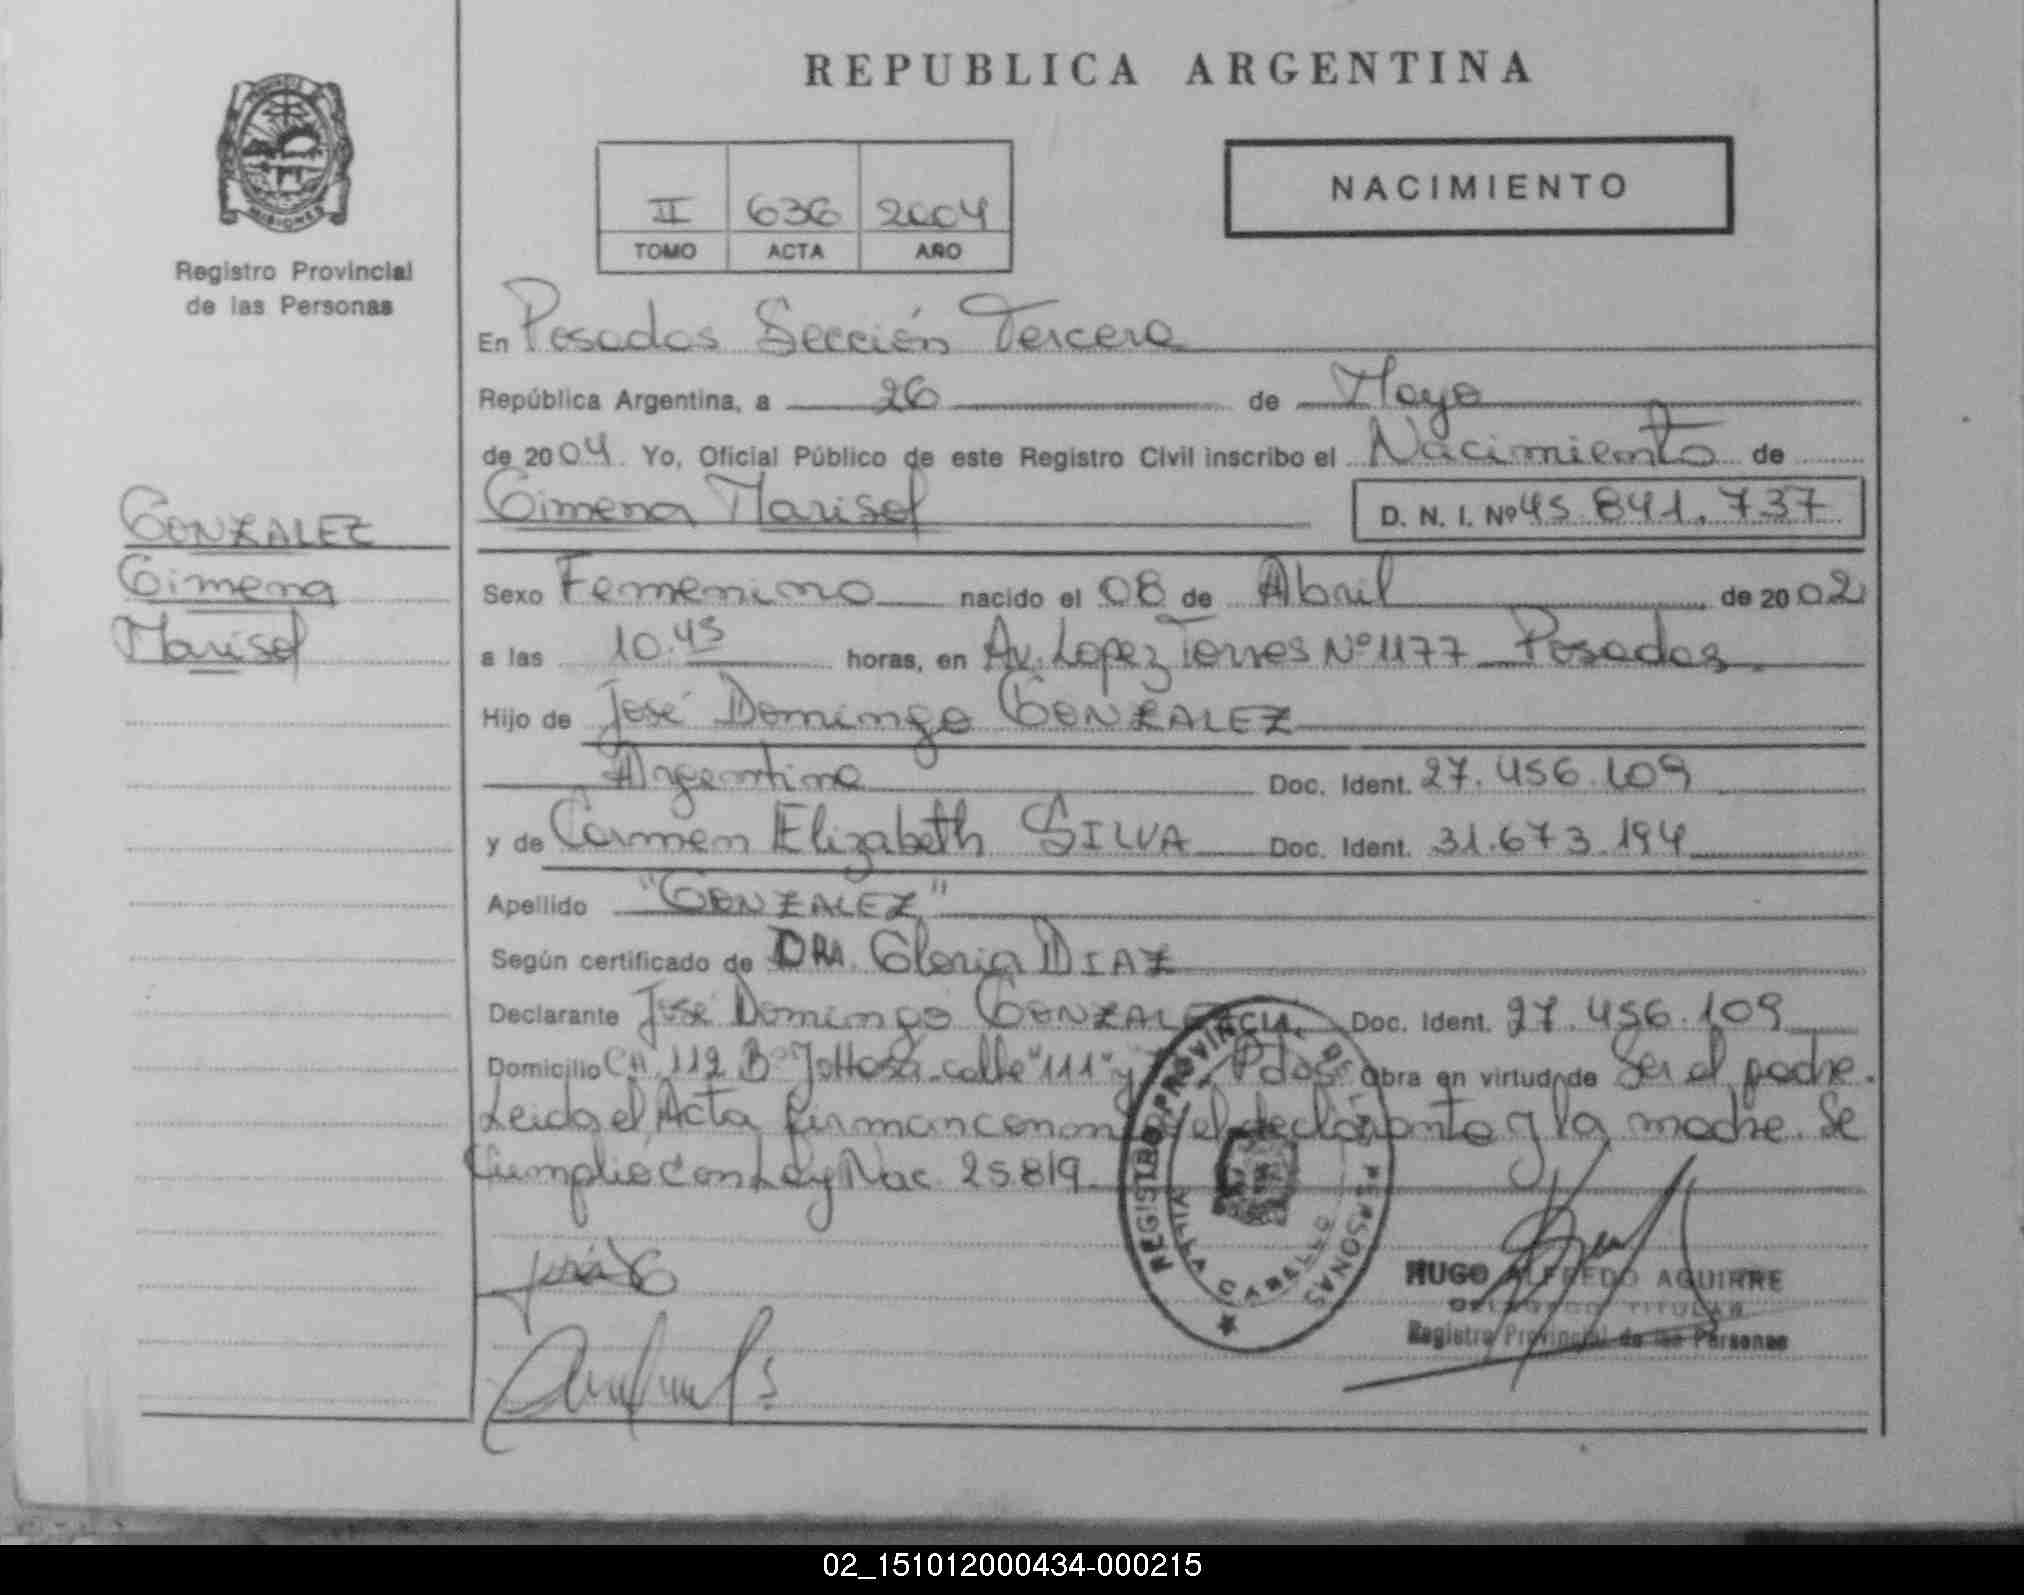 REPUBLICA ARGENTINA
II 636 2004
TOMO ACTA AÑO
NACIMIENTO
PROVINCIA MISIONES
Registro Provincial
de las Personas
GONZALEZ
Gimena
Marisol
En Posadas Sección Tercera
República Argentina, a 26 de Mayo
de 2004. Yo, Oficial Público de este Registro Civil inscribo el Nacimiento de
Gimena Marisol D. N. I. Nº 45.841.737
Sexo Femenino nacido el 08 de Abril de 2002
a las 10.45 horas, en Av. Lopez Torres Nº 1177 Posadas.
Hijo de José Domingo GONZALEZ
Argentino Doc. Ident. 27.456.109
y de Carmen Elizabeth SILVA Doc. Ident. 31.673.194
Apellido "GONZALEZ"
Según certificado de DRA. Gloria DIAZ
Declarante José Domingo GONZALEZ Doc. Ident. 27.456.109
Domicilio CH. 112 Bº calle "111" y Pdas. Obra en virtud de Ser el padre.
Leida el Acta firman conmigo el declarante y la madre. Se
Cumplió con Ley Nac. 25.819.
REGISTRO PROVINCIAL DE PERSONAS
VILLA CABELLO
HUGO ALFREDO AGUIRRE
DELEGADO TITULAR
Registro Provincial de las Personas
02_151012000434-000215